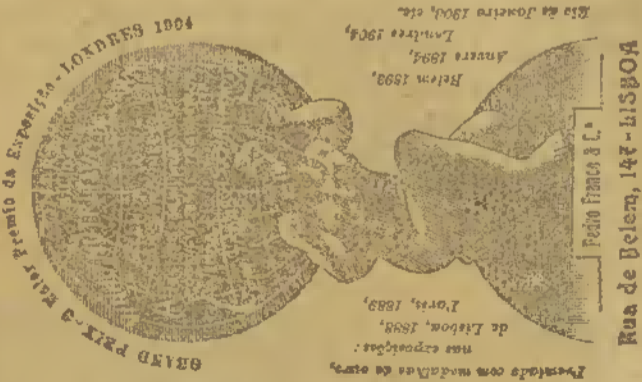 GRAND PRIX - O Maior Premio da Exposição - LONDRES 1904
Premiado com medalhas de ouro,
nas exposições:
de Lisboa, 1888,
Paris, 1889,
Belem 1893,
Anvers 1894,
Londres 1904,
Rio de Janeiro 1908, etc.
Pedro Franco & C.ª
Rua de Belem, 147 - LISBOA